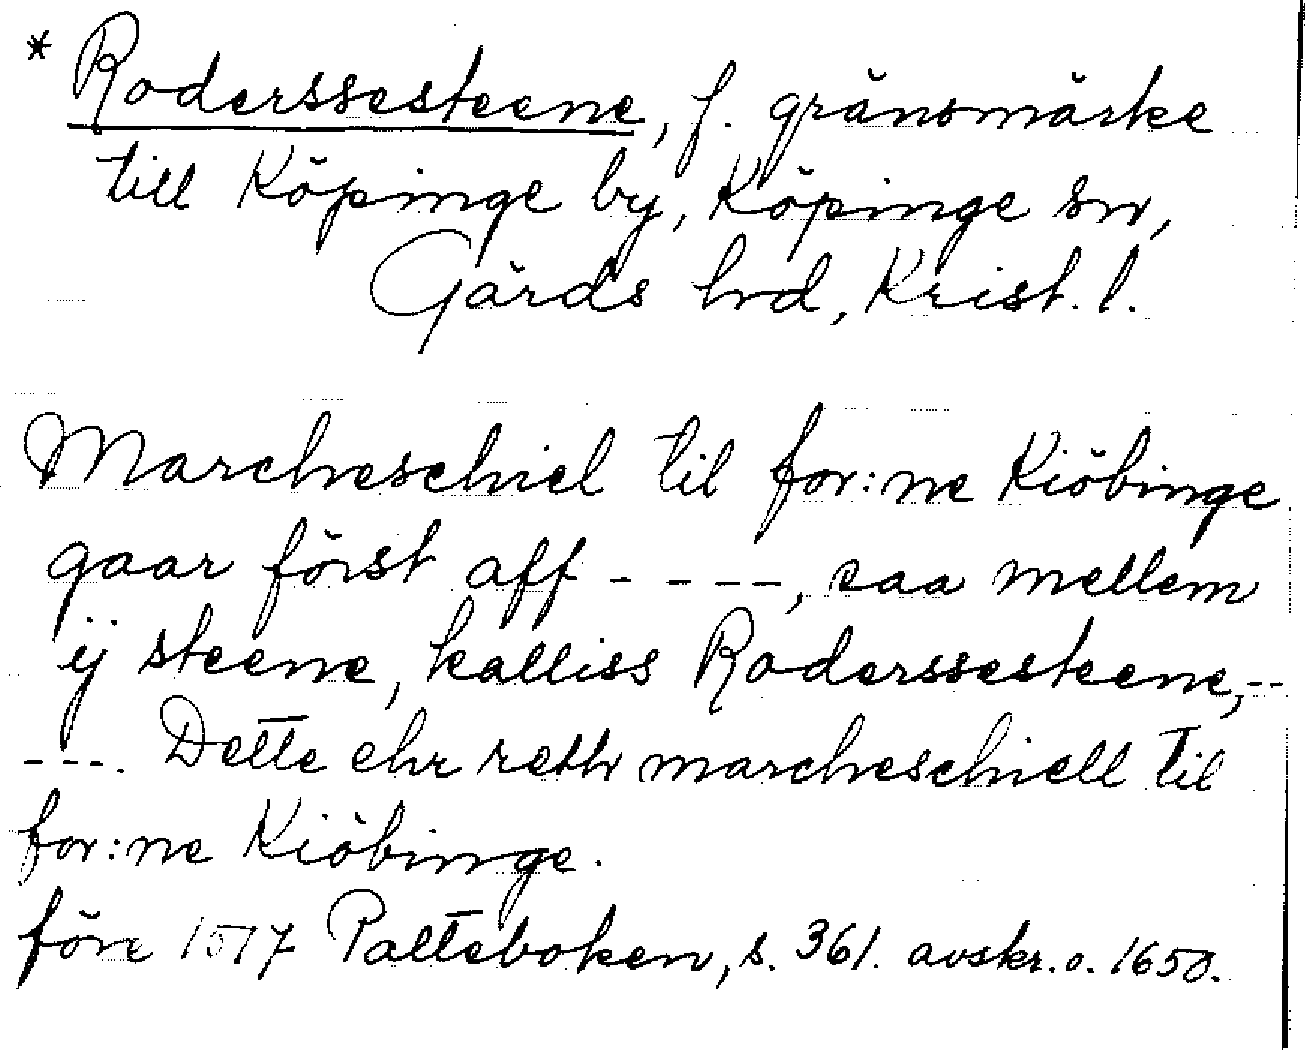 * Roderssesteene, f. gränsmärke
till Köpinge by, Köpinge sn,
Gärds hrd, Krist. l.
Marcheschiel til for:ne Kiöbinge
gaar först aff - - - -, saa mellem
ij steene, kalliss Roderssesteene, --
---. Dette ehr reth marcheschiell til
for:ne Kiöbinge.
före 1517 Palteboken, s. 361. avskr. o. 1650.